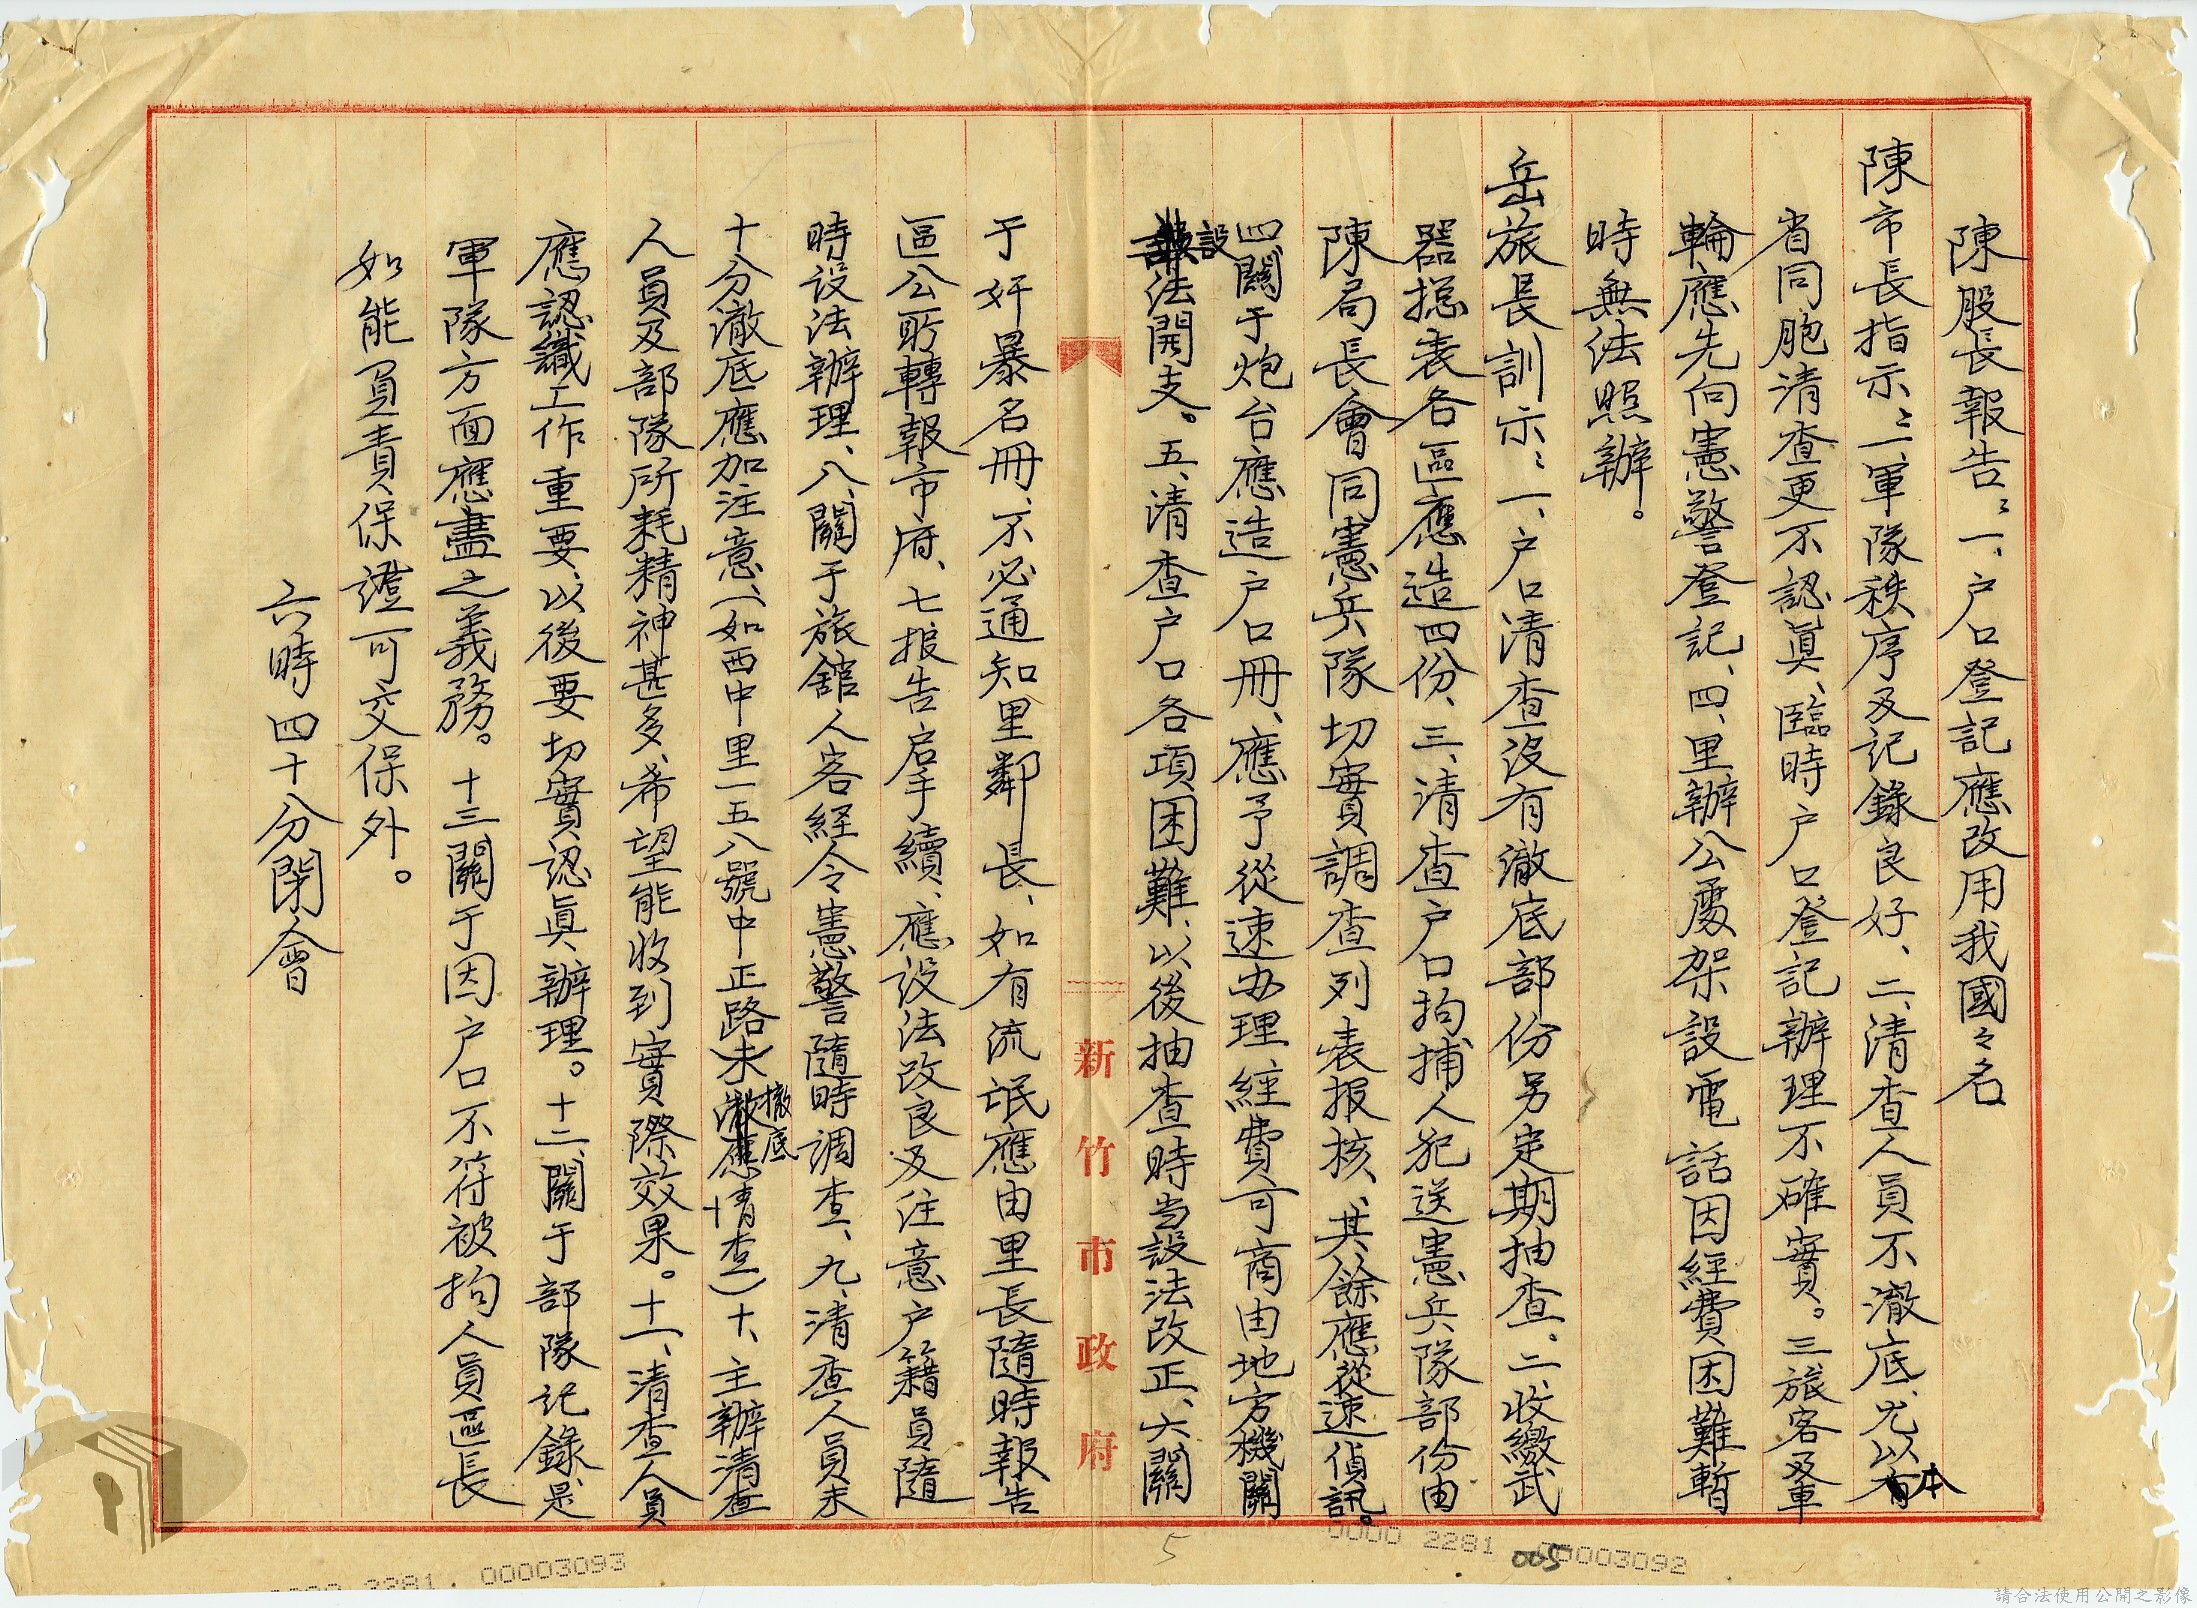 陳股長報告：一、户口登記應改用我國々名
陳市長指示：一、軍隊秩序及記錄良好、二、清查人員不澈底、尤以本
省同胞清查更不認眞、臨時户口登記辦理不確實。三、旅客及車
輪應先向憲警登記、四、里辦公處架設電話因經費困難暫
時無法照辦。
岳旅長訓示：一、户口清查没有澈底部份另定期抽查。二、收繳武
器總表各區應造四份、三、清查户口拘捕人犯送憲兵隊部份由
陳局長會同憲兵隊切實調查列表报核、其餘應從速偵訊。
四、關于炮台應造户口冊、應予從速办理經費可商由地方機關
設法開支。五、清查户口各項困難、以後抽查時当設法改正、六、關
于奸暴名冊、不必通知里鄰長、如有流氓應由里長隨時報告
區公所轉報市府、七、报告启手續、應設法改良及注意户籍員隨
時設法辦理、八、關于旅舘人客経令憲警隨時調查、九、清查人員未
十分澈底應加注意、（如西中里一五八號中正路未澈底應清查）十、主辦清查
人員及部隊所耗精神甚多、希望能收到實際效果。十一、清查人員
應認識工作重要、以後要切實認眞辦理。十二、關于部隊記錄是
軍隊方面應盡之義務。十三、關于因户口不符被拘人員區長
如能負責保證可交保外。
六時四十分閉會
新竹市政府
5
0000 2281
005
00003092
0000 2281
00003093
請合法使用公開之影像